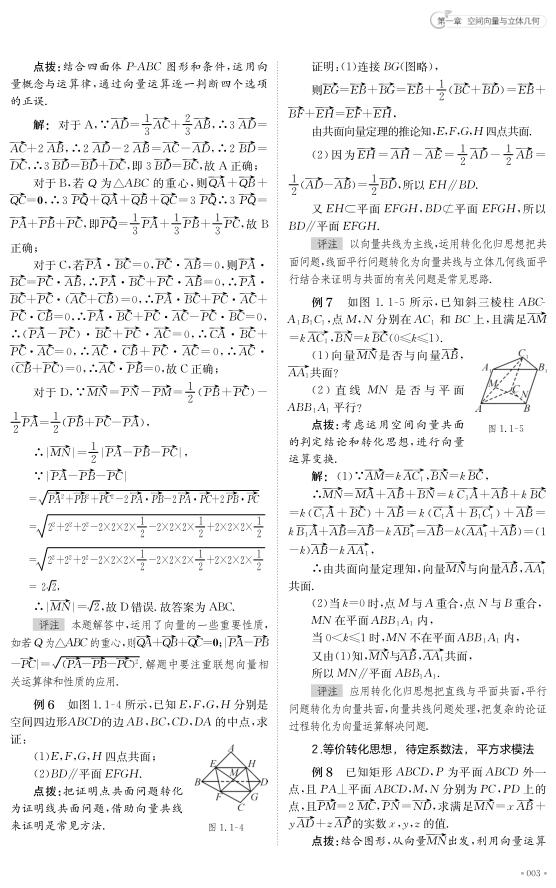 第一章 空间向量与立体几何
点拨:结合四面体 P-ABC 图形和条件,运用向
量概念与运算律,通过向量运算逐一判断四个选项
的正误.
解: 对于 A,∵$\overrightarrow{AD}=\frac{1}{3}\overrightarrow{AC}+\frac{2}{3}\overrightarrow{AB}$,∴$3\overrightarrow{AD}=$
$\overrightarrow{AC}+2\overrightarrow{AB}$,∴$2\overrightarrow{AD}-2\overrightarrow{AB}=\overrightarrow{AC}-\overrightarrow{AD}$,∴$2\overrightarrow{BD}=$
$\overrightarrow{DC}$,∴$3\overrightarrow{BD}=\overrightarrow{BD}+\overrightarrow{DC}$,即$3\overrightarrow{BD}=\overrightarrow{BC}$,故 A 正确;
对于 B,若 Q 为△ABC 的重心,则$\overrightarrow{QA}+\overrightarrow{QB}+$
$\overrightarrow{QC}=\mathbf{0}$,∴$3\overrightarrow{PQ}+\overrightarrow{QA}+\overrightarrow{QB}+\overrightarrow{QC}=3\overrightarrow{PQ}$∴$3\overrightarrow{PQ}=$
$\overrightarrow{PA}+\overrightarrow{PB}+\overrightarrow{PC}$,即$\overrightarrow{PQ}=\frac{1}{3}\overrightarrow{PA}+\frac{1}{3}\overrightarrow{PB}+\frac{1}{3}\overrightarrow{PC}$,故 B
正确;
对于 C,若$\overrightarrow{PA}·\overrightarrow{BC}=0$,$\overrightarrow{PC}·\overrightarrow{AB}=0$,则$\overrightarrow{PA}·$
$\overrightarrow{BC}=\overrightarrow{PC}·\overrightarrow{AB}$,∴$\overrightarrow{PA}·\overrightarrow{BC}+\overrightarrow{PC}·\overrightarrow{AB}=0$,∴$\overrightarrow{PA}·$
$\overrightarrow{BC}+\overrightarrow{PC}·(\overrightarrow{AC}+\overrightarrow{CB})=0$,∴$\overrightarrow{PA}·\overrightarrow{BC}+\overrightarrow{PC}·\overrightarrow{AC}+$
$\overrightarrow{PC}·\overrightarrow{CB}=0$,∴$\overrightarrow{PA}·\overrightarrow{BC}+\overrightarrow{PC}·\overrightarrow{AC}-\overrightarrow{PC}·\overrightarrow{BC}=0$,
∴$(\overrightarrow{PA}-\overrightarrow{PC})·\overrightarrow{BC}+\overrightarrow{PC}·\overrightarrow{AC}=0$,∴$\overrightarrow{CA}·\overrightarrow{BC}+$
$\overrightarrow{PC}·\overrightarrow{AC}=0$,∴$\overrightarrow{AC}·\overrightarrow{CB}+\overrightarrow{PC}·\overrightarrow{AC}=0$,∴$\overrightarrow{AC}·$
$(\overrightarrow{CB}+\overrightarrow{PC})=0$,∴$\overrightarrow{AC}·\overrightarrow{PB}=0$,故 C 正确;
对于 D,∵$\overrightarrow{MN}=\overrightarrow{PN}-\overrightarrow{PM}=\frac{1}{2}(\overrightarrow{PB}+\overrightarrow{PC})-$
$\frac{1}{2}\overrightarrow{PA}=\frac{1}{2}(\overrightarrow{PB}+\overrightarrow{PC}-\overrightarrow{PA})$,
∴$|\overrightarrow{MN}|=\frac{1}{2}|\overrightarrow{PA}-\overrightarrow{PB}-\overrightarrow{PC}|$,
∵$|\overrightarrow{PA}-\overrightarrow{PB}-\overrightarrow{PC}|$
$=\sqrt{\overrightarrow{PA}^2+\overrightarrow{PB}^2+\overrightarrow{PC}^2-2\overrightarrow{PA}·\overrightarrow{PB}-2\overrightarrow{PA}·\overrightarrow{PC}+2\overrightarrow{PB}·\overrightarrow{PC}}$
$=\sqrt{2^2+2^2+2^2-2×2×2×\frac{1}{2}-2×2×2×\frac{1}{2}+2×2×2×\frac{1}{2}}$
$=\sqrt{2^2+2^2+2^2-2×2×2×\frac{1}{2}-2×2×2×\frac{1}{2}+2×2×2×\frac{1}{2}}$
$=2\sqrt{2}$,
∴$|\overrightarrow{MN}|=\sqrt{2}$,故 D 错误.故答案为 ABC.
评注 本题解答中,运用了向量的一些重要性质,
如若 Q 为△ABC 的重心,则$\overrightarrow{QA}+\overrightarrow{QB}+\overrightarrow{QC}=\mathbf{0}$;$|\overrightarrow{PA}-\overrightarrow{PB}$
$-\overrightarrow{PC}|=\sqrt{(\overrightarrow{PA}-\overrightarrow{PB}-\overrightarrow{PC})^2}$.解题中要注重联想向量相
关运算律和性质的应用.
例 6 如图 1.1-4 所示,已知 E,F,G,H 分别是
空间四边形ABCD的边 AB,BC,CD,DA 的中点,求
证:
(1)E,F,G,H 四点共面;
(2)BD∥平面 EFGH.
点拨:把证明点共面问题转化
为证明线共面问题,借助向量共线
来证明是常见方法.
A
E H
M
B D
F G
C
图 1.1-4
证明:(1)连接 BG(图略),
则$\overrightarrow{EG}=\overrightarrow{EB}+\overrightarrow{BG}=\overrightarrow{EB}+\frac{1}{2}(\overrightarrow{BC}+\overrightarrow{BD})=\overrightarrow{EB}+$
$\overrightarrow{BF}+\overrightarrow{EH}=\overrightarrow{EF}+\overrightarrow{EH}$,
由共面向量定理的推论知,E,F,G,H 四点共面.
(2)因为$\overrightarrow{EH}=\overrightarrow{AH}-\overrightarrow{AE}=\frac{1}{2}\overrightarrow{AD}-\frac{1}{2}\overrightarrow{AB}=$
$\frac{1}{2}(\overrightarrow{AD}-\overrightarrow{AB})=\frac{1}{2}\overrightarrow{BD}$,所以 EH∥BD.
又 EH⊂平面 EFGH,BD⊄平面 EFGH,所以
BD∥平面 EFGH.
评注 以向量共线为主线,运用转化化归思想把共
面问题,线面平行问题转化为向量共线与立体几何线面平
行结合来证明与共面的有关问题是常见思路.
例 7 如图 1.1-5 所示,已知斜三棱柱 ABC-
A₁B₁C₁,点 M,N 分别在 AC₁ 和 BC 上,且满足$\overrightarrow{AM}$
$=k\overrightarrow{AC_1}$,$\overrightarrow{BN}=k\overrightarrow{BC}$(0≤k≤1).
(1)向量$\overrightarrow{MN}$是否与向量$\overrightarrow{AB}$,
$\overrightarrow{AA_1}$共面?
(2)直线 MN 是否与平面
ABB₁A₁ 平行?
点拨:考虑运用空间向量共面
的判定结论和转化思想,进行向量
运算变换.
C₁
A₁ B₁
M C
N
A B
图 1.1-5
解:(1)∵$\overrightarrow{AM}=k\overrightarrow{AC_1}$,$\overrightarrow{BN}=k\overrightarrow{BC}$,
∴$\overrightarrow{MN}=\overrightarrow{MA}+\overrightarrow{AB}+\overrightarrow{BN}=k\overrightarrow{C_1A}+\overrightarrow{AB}+k\overrightarrow{BC}$
$=k(\overrightarrow{C_1A}+\overrightarrow{BC})+\overrightarrow{AB}=k(\overrightarrow{C_1A}+\overrightarrow{B_1C_1})+\overrightarrow{AB}=$
$k\overrightarrow{B_1A}+\overrightarrow{AB}=\overrightarrow{AB}-k\overrightarrow{AB_1}=\overrightarrow{AB}-k(\overrightarrow{AA_1}+\overrightarrow{AB})=(1$
$-k)\overrightarrow{AB}-k\overrightarrow{AA_1}$,
∴由共面向量定理知,向量$\overrightarrow{MN}$与向量$\overrightarrow{AB}$,$\overrightarrow{AA_1}$
共面.
(2)当 k=0 时,点 M 与 A 重合,点 N 与 B 重合,
MN 在平面 ABB₁A₁ 内,
当 0<k≤1 时,MN 不在平面 ABB₁A₁ 内,
又由(1)知,$\overrightarrow{MN}$与$\overrightarrow{AB}$,$\overrightarrow{AA_1}$共面,
所以 MN∥平面 ABB₁A₁.
评注 应用转化化归思想把直线与平面共面,平行
问题转化为向量共面,向量共线问题处理,把复杂的论证
过程转化为向量运算解决问题.
2.等价转化思想,待定系数法,平方求模法
例 8 已知矩形 ABCD,P 为平面 ABCD 外一
点,且 PA⊥平面 ABCD,M,N 分别为 PC,PD 上的
点,且$\overrightarrow{PM}=2\overrightarrow{MC}$,$\overrightarrow{PN}=\overrightarrow{ND}$,求满足$\overrightarrow{MN}=x\overrightarrow{AB}+$
$y\overrightarrow{AD}+z\overrightarrow{AP}$的实数 x,y,z 的值.
点拨:结合图形,从向量$\overrightarrow{MN}$出发,利用向量运算
·003·